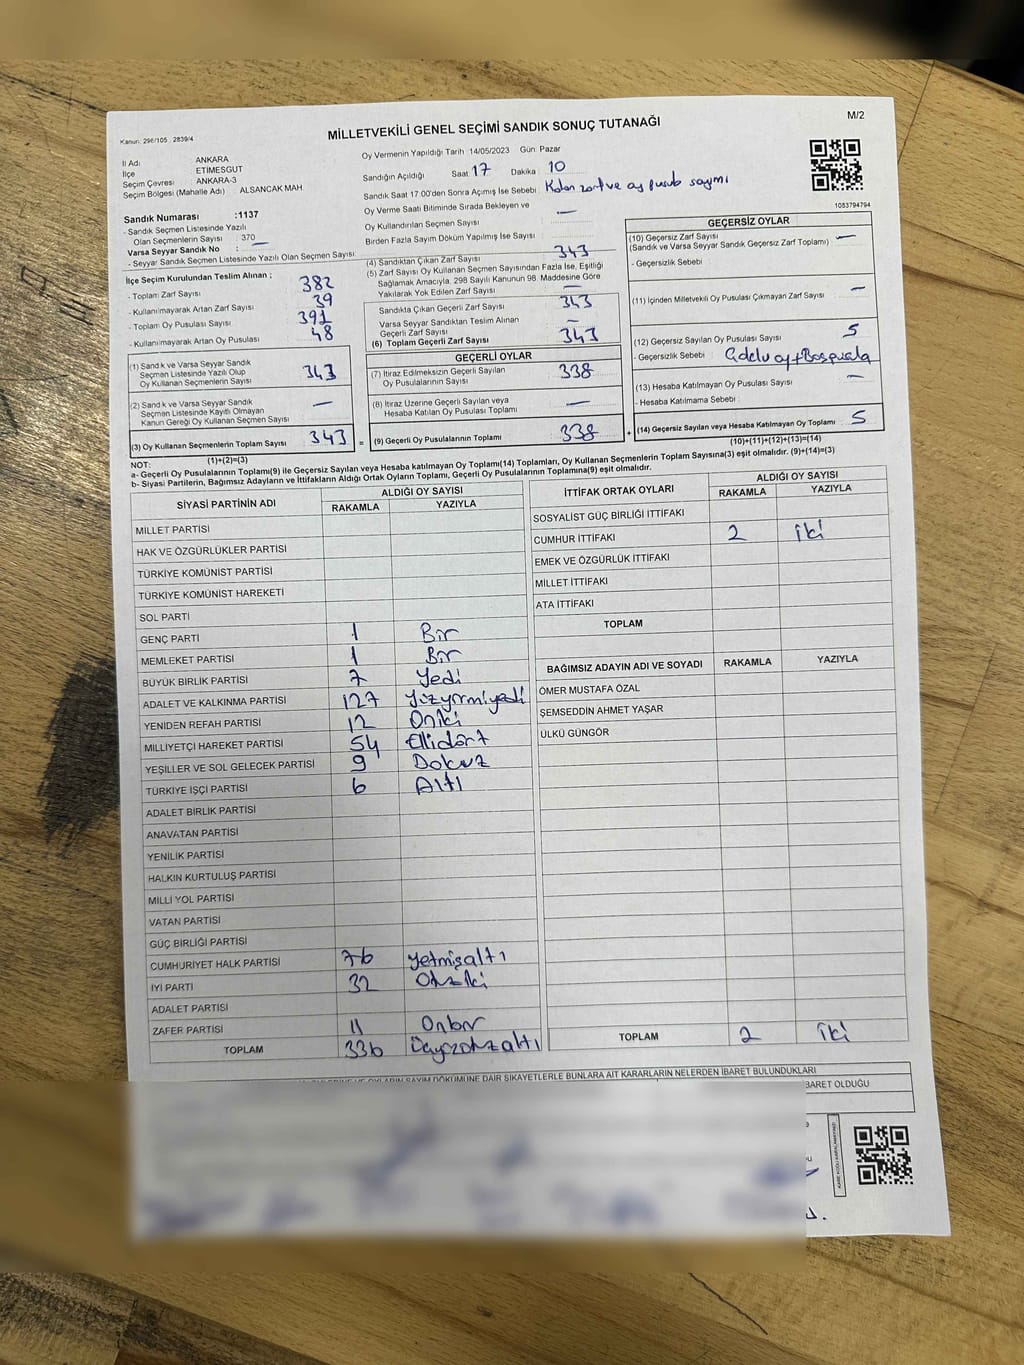 M/2
Kanun: 298/105 2839/4
MİLLETVEKİLİ GENEL SEÇİMİ SANDIK SONUÇ TUTANAĞI
İl Adı ANKARA
İlçe ETİMESGUT
Seçim Çevresi ANKARA-3
Seçim Bölgesi (Mahalle Adı) : ALSANCAK MAH
Oy Vermenin Yapıldığı Tarih 14/05/2023 Gün: Pazar
Sandığın Açıldığı Saat 17 Dakika 10
Sandık Saat 17:00'den Sonra Açımış İse Sebebi ve oy pusula sayımı
Oy Verme Saati Bitiminde Sırada Bekleyen ve
Oy Kullandırılan Seçmen Sayısı : —
Birden Fazla Sayım Döküm Yapılmış İse Sayısı :
1083794794
Sandık Numarası :1137
- Sandık Seçmen Listesinde Yazılı
Olan Seçmenlerin Sayısı : 370
Varsa Seyyar Sandık No : —
- Seyyar Sandık Seçmen Listesinde Yazılı Olan Seçmen Sayısı:
İlçe Seçim Kurulundan Teslim Alınan ;
- Toplam Zarf Sayısı 382
- Kullanılmayarak Artan Zarf Sayısı 39
- Toplam Oy Pusulası Sayısı 391
- Kullanılmayarak Artan Oy Pusulası 48
(1) Sandık ve Varsa Seyyar Sandık
Seçmen Listesinde Yazılı Olup
Oy Kullanan Seçmenlerin Sayısı 343
(2) Sandık ve Varsa Seyyar Sandık
Seçmen Listesinde Kayıtlı Olmayan
Kanun Gereği Oy Kullanan Seçmen Sayısı —
(3) Oy Kullanan Seçmenlerin Toplam Sayısı 343
(1)+(2)=(3)
(4) Sandıktan Çıkan Zarf Sayısı 343
(5) Zarf Sayısı Oy Kullanan Seçmen Sayısından Fazla İse, Eşitliği
Sağlamak Amacıyla, 298 Sayılı Kanunun 98. Maddesine Göre
Yakılarak Yok Edilen Zarf Sayısı —
Sandıkta Çıkan Geçerli Zarf Sayısı 343
Varsa Seyyar Sandıktan Teslim Alınan
Geçerli Zarf Sayısı —
(6) Toplam Geçerli Zarf Sayısı 343
GEÇERLİ OYLAR
(7) İtiraz Edilmeksizin Geçerli Sayılan
Oy Pusulalarının Sayısı 338
(8) İtiraz Üzerine Geçerli Sayılan veya
Hesaba Katılan Oy Pusulası Toplamı —
= (9) Geçerli Oy Pusulalarının Toplamı 338
GEÇERSİZ OYLAR
(10) Geçersiz Zarf Sayısı —
(Sandık ve Varsa Seyyar Sandık Geçersiz Zarf Toplamı)
- Geçersizlik Sebebi :
(11) İçinden Milletvekili Oy Pusulası Çıkmayan Zarf Sayısı —
(12) Geçersiz Sayılan Oy Pusulası Sayısı 5
- Geçersizlik Sebebi :
(13) Hesaba Katılmayan Oy Pusulası Sayısı —
- Hesaba Katılmama Sebebi :
+ (14) Geçersiz Sayılan veya Hesaba Katılmayan Oy Toplamı 5
(10)+(11)+(12)+(13)=(14)
NOT:
a- Geçerli Oy Pusulalarının Toplamı(9) ile Geçersiz Sayılan veya Hesaba katılmayan Oy Toplamı(14) Toplamları, Oy Kullanan Seçmenlerin Toplam Sayısına(3) eşit olmalıdır. (9)+(14)=(3)
b- Siyasi Partilerin, Bağımsız Adayların ve İttifakların Aldığı Ortak Oyların Toplamı, Geçerli Oy Pusulalarının Toplamına(9) eşit olmalıdır.
SİYASİ PARTİNİN ADI ALDIĞI OY SAYISI
RAKAMLA YAZIYLA
MİLLET PARTİSİ
HAK VE ÖZGÜRLÜKLER PARTİSİ
TÜRKİYE KOMÜNİST PARTİSİ
TÜRKİYE KOMÜNİST HAREKETİ
SOL PARTİ
GENÇ PARTİ 1 Bir
MEMLEKET PARTİSİ 1 Bir
BÜYÜK BİRLİK PARTİSİ 7 Yedi
ADALET VE KALKINMA PARTİSİ 127 Yüzyirmiyedi
YENİDEN REFAH PARTİSİ 12 Oniki
MİLLİYETÇİ HAREKET PARTİSİ 54 Ellidört
YEŞİLLER VE SOL GELECEK PARTİSİ 9 Dokuz
TÜRKİYE İŞÇİ PARTİSİ 6 Altı
ADALET BİRLİK PARTİSİ
ANAVATAN PARTİSİ
YENİLİK PARTİSİ
HALKIN KURTULUŞ PARTİSİ
MİLLİ YOL PARTİSİ
VATAN PARTİSİ
GÜÇ BİRLİĞİ PARTİSİ
CUMHURİYET HALK PARTİSİ 76 Yetmişaltı
İYİ PARTİ 32 Otuziki
ADALET PARTİSİ
ZAFER PARTİSİ 11 Onbir
TOPLAM 336 Üçyüzotuzaltı
İTTİFAK ORTAK OYLARI ALDIĞI OY SAYISI
RAKAMLA YAZIYLA
SOSYALİST GÜÇ BİRLİĞİ İTTİFAKI
CUMHUR İTTİFAKI 2 iki
EMEK VE ÖZGÜRLÜK İTTİFAKI
MİLLET İTTİFAKI
ATA İTTİFAKI
TOPLAM
BAĞIMSIZ ADAYIN ADI VE SOYADI RAKAMLA YAZIYLA
ÖMER MUSTAFA ÖZAL
ŞEMSEDDİN AHMET YAŞAR
ÜLKÜ GÜNGÖR
TOPLAM 2 iki
SAYIM DÖKÜMÜNE DAİR ŞİKAYETLERLE BUNLARA AİT KARARLARIN NELERDEN İBARET BULUNDUKLARI
BARET OLDUĞU